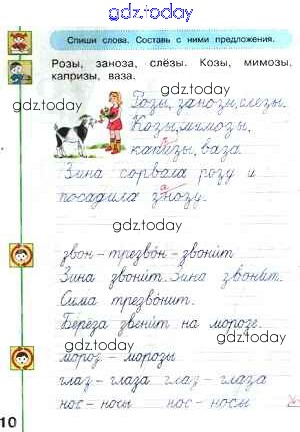 gdz.today
Спиши слова. Составь с ними предложения.
Розы, заноза, слёзы. Козы, мимозы,
капризы, ваза.
gdz.today
Розы, занозы, слезы.
Козы, мимозы,
gdz.today
капизы, ваза.
Зина сорвала розу и
посадила знозу.
gdz.today
звон – трезвон – звонит
Зина звонит. Зина звонит.
gdz.today
Сима трезвонит.
Берёза звенит на морозе.
gdz.today
мороз – морозы
глаз – глаза глаз – глаза
нос – носы нос – носы
10
gdz.today